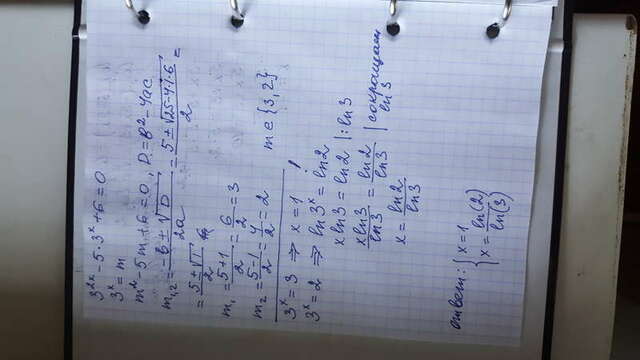 3^{2x} - 5·3^x + 6 = 0
3^x = m
m² - 5m + 6 = 0 , D = B² - 4ac
m₁,₂ = (-b ± √D)/2a = (5 ± √(25-4·1·6))/2 =
= (5 ± √1)/2
m₁ = (5+1)/2 = 6/2 = 3
m₂ = (5-1)/2 = 4/2 = 2 m ∈ {3, 2}
3^x = 3 ⇒ x = 1 !
3^x = 2 ⇒ ln3^x = ln2
xln3 = ln2 |:ln3
xln3/ln3 = ln2/ln3 | сокращаем ln3
x = ln2/ln3
ответ: { x = 1
x = ln(2)/ln(3)